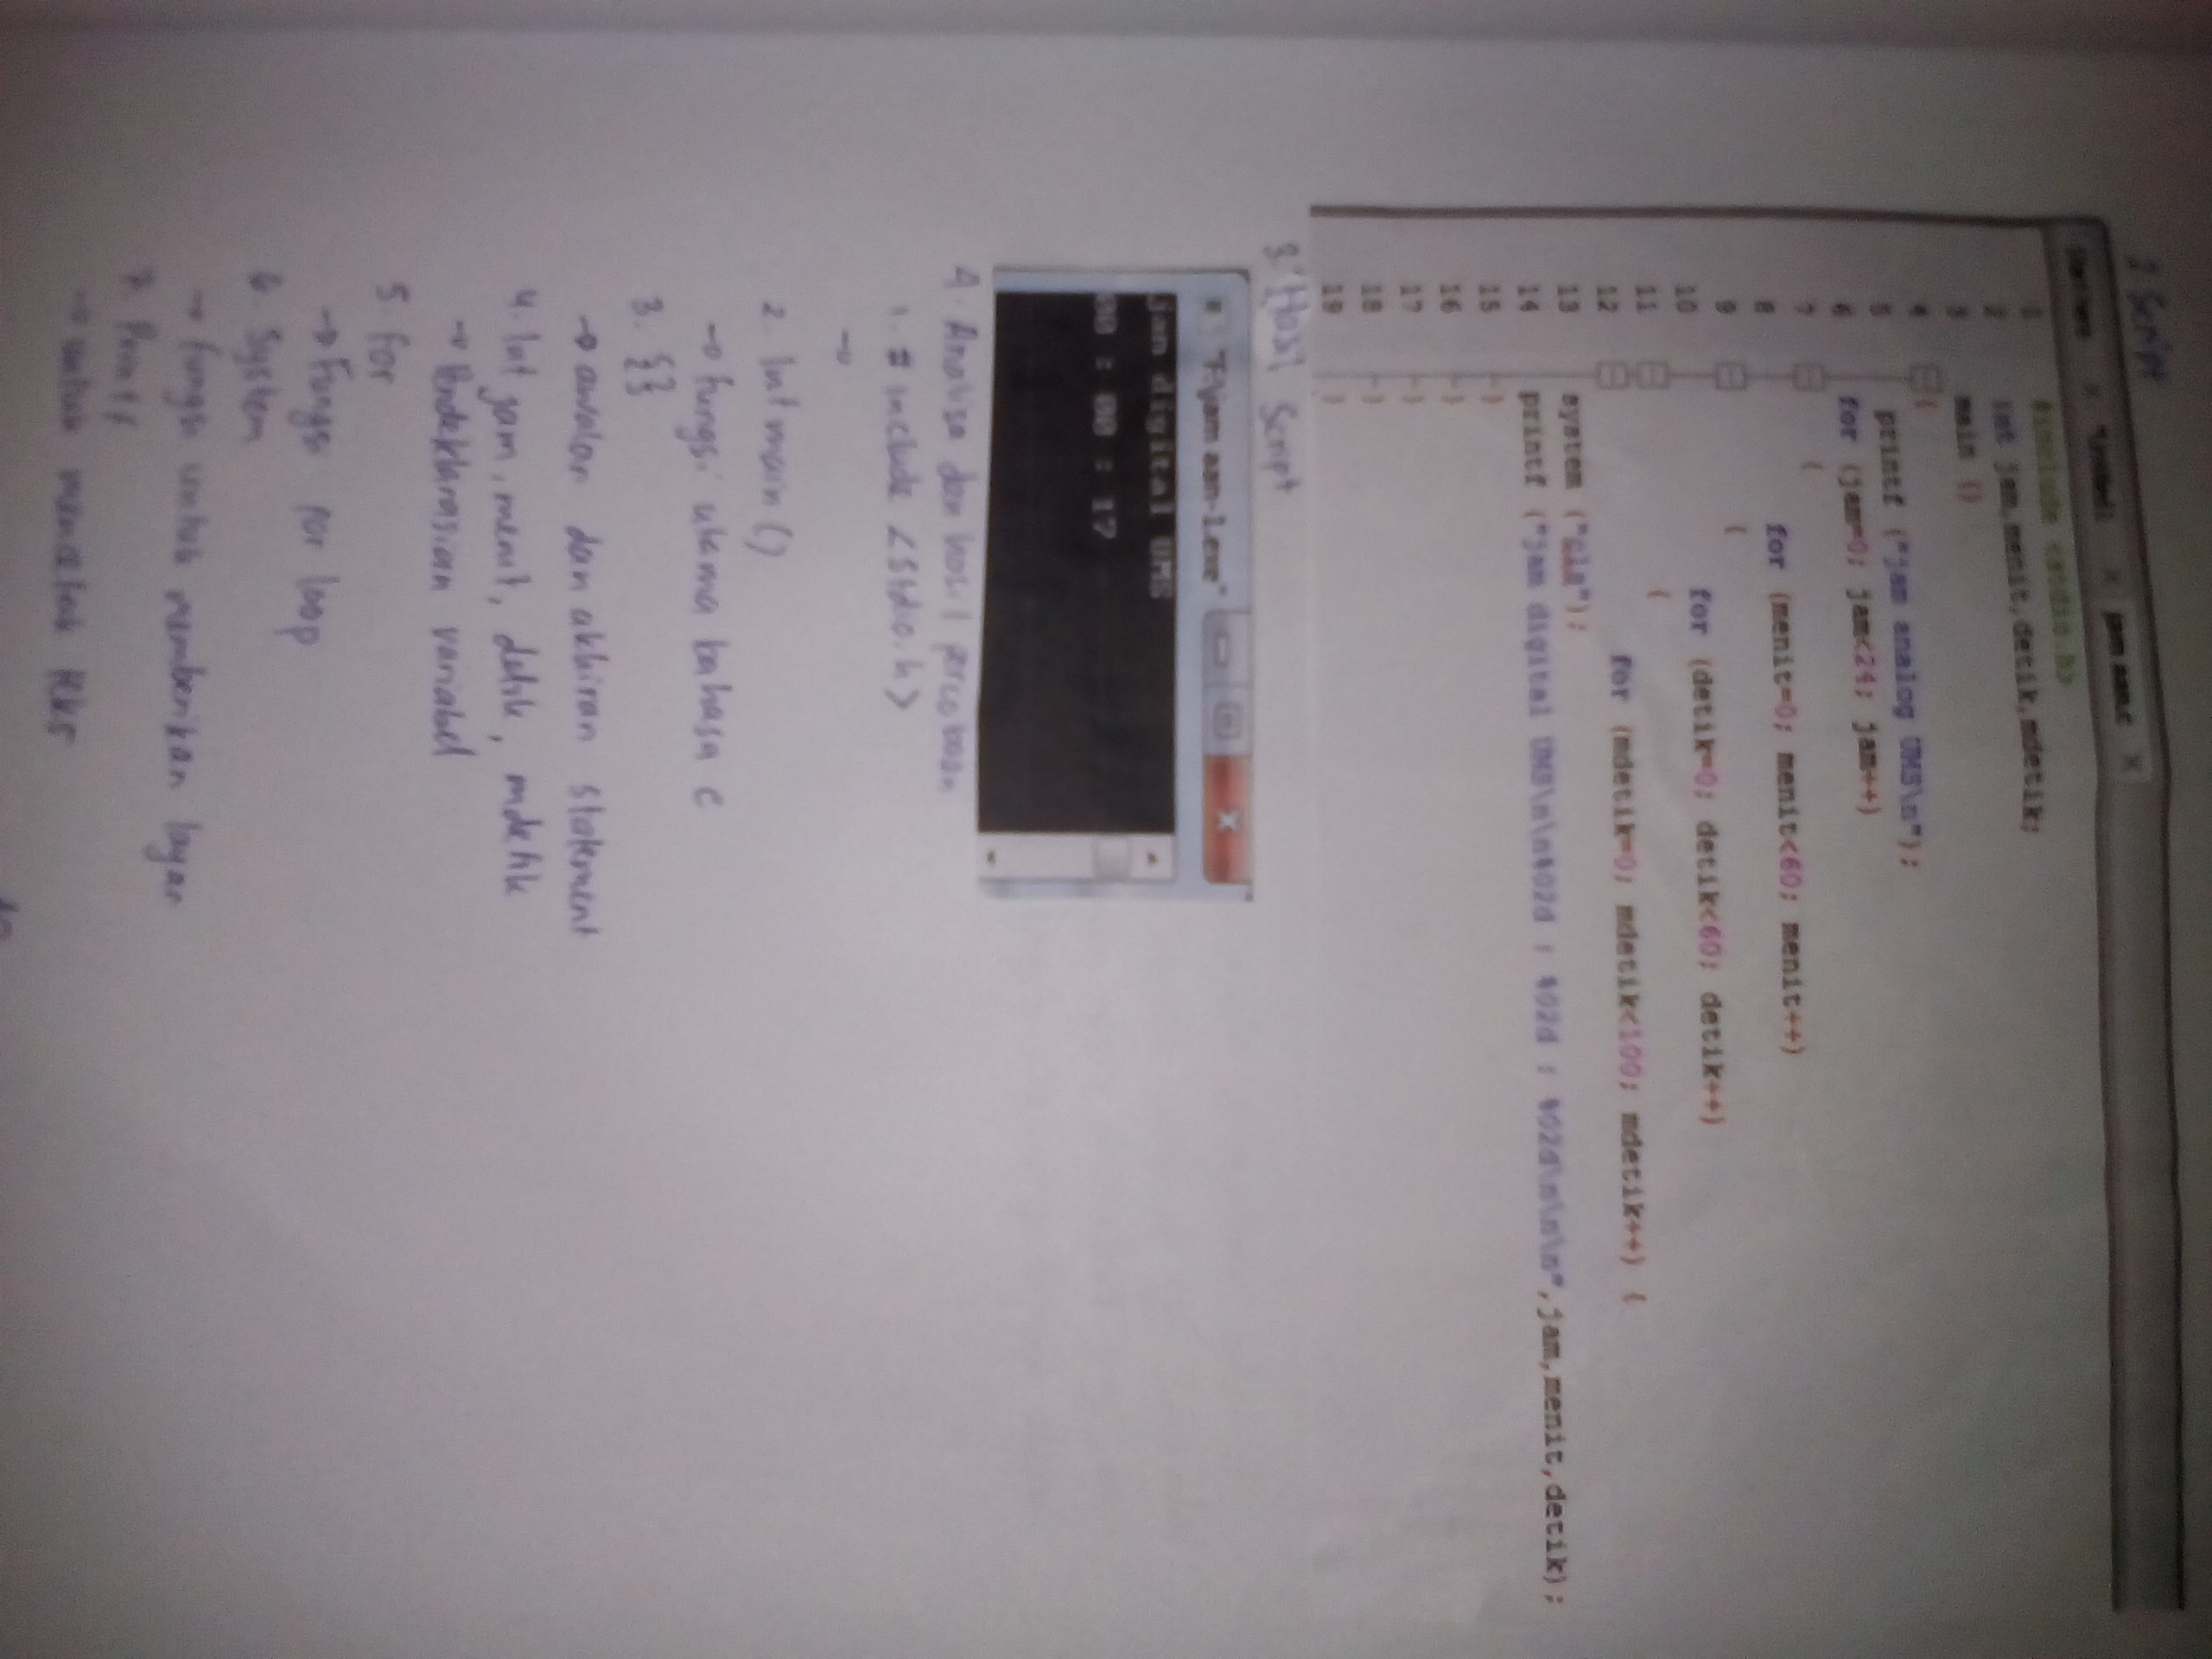 2. Script
Untitled × jam aan.c ×
1 #include <stdio.h>
2 int jam,menit,detik,mdetik;
3 main ()
4 {
5 printf ("jam analog UMS\n");
6 for (jam=0; jam<24; jam++)
7 {
8 for (menit=0; menit<60; menit++)
9 {
10 for (detik=0; detik<60; detik++)
11 {
12 for (mdetik=0; mdetik<100; mdetik++) {
13 system ("cls");
14 printf ("jam digital UMS\n\n%02d : %02d : %02d\n\n\n",jam,menit,detik);
15 }
16 }
17 }
18 }
19 }
3. Hasil Script
"F:\jam aan-1.exe"
jam digital UMS
00 : 00 : 17
4. Analisa dan hasil percobaan
1. # include <stdio.h>
→
2. Int main ()
→ fungsi utama bahasa c
3. {}
→ awalan dan akhiran statement
4. Int jam, menit, detik, mdetik
→
variabel
5. for
→ Fungsi for loop
6. System
→ fungsi untuk memberikan layar
7. Printf
→ untuk mencetak teks